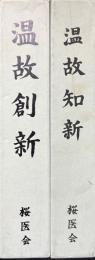 温故知新
桜医会
温故創新
桜医会